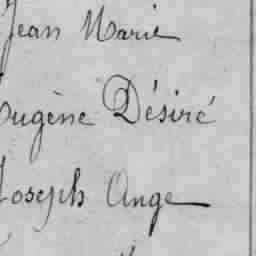 Jean Marie
Eugène Désiré
Joseph Ange